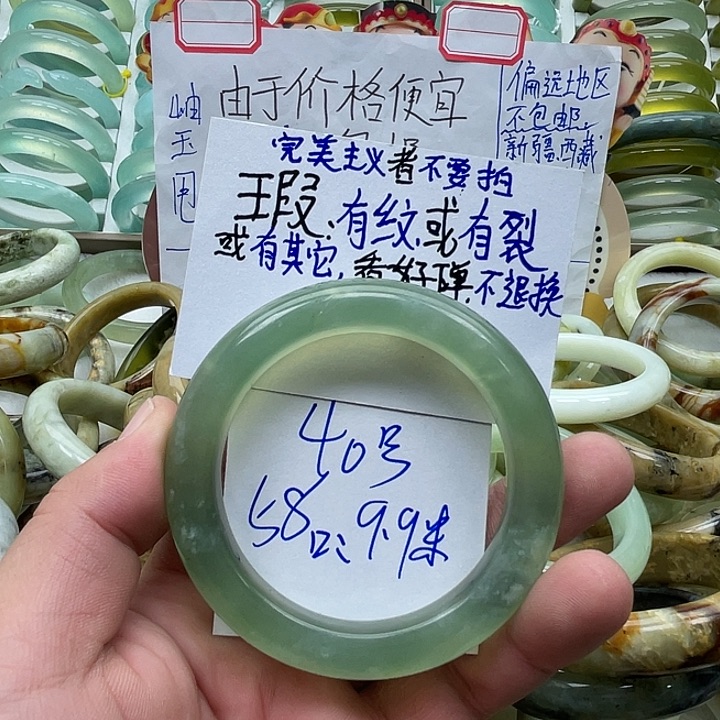 由于价格便宜
岫
玉
甩
一
偏远地区
不包邮,
新疆.西藏
完美主义者不要拍
瑕、有纹、或有裂
或有其它,看好弹.不退换
40号
58口、9.9米